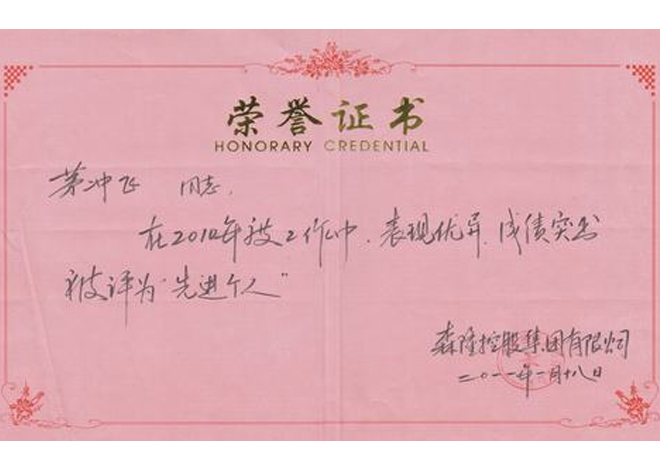 荣誉证书
HONORARY CREDENTIAL
茅冲飞 同志，
在2010年段工作中，表现优异，成绩突出
被评为“先进个人”
森隆控股集团有限公司
二〇一一年一月十八日